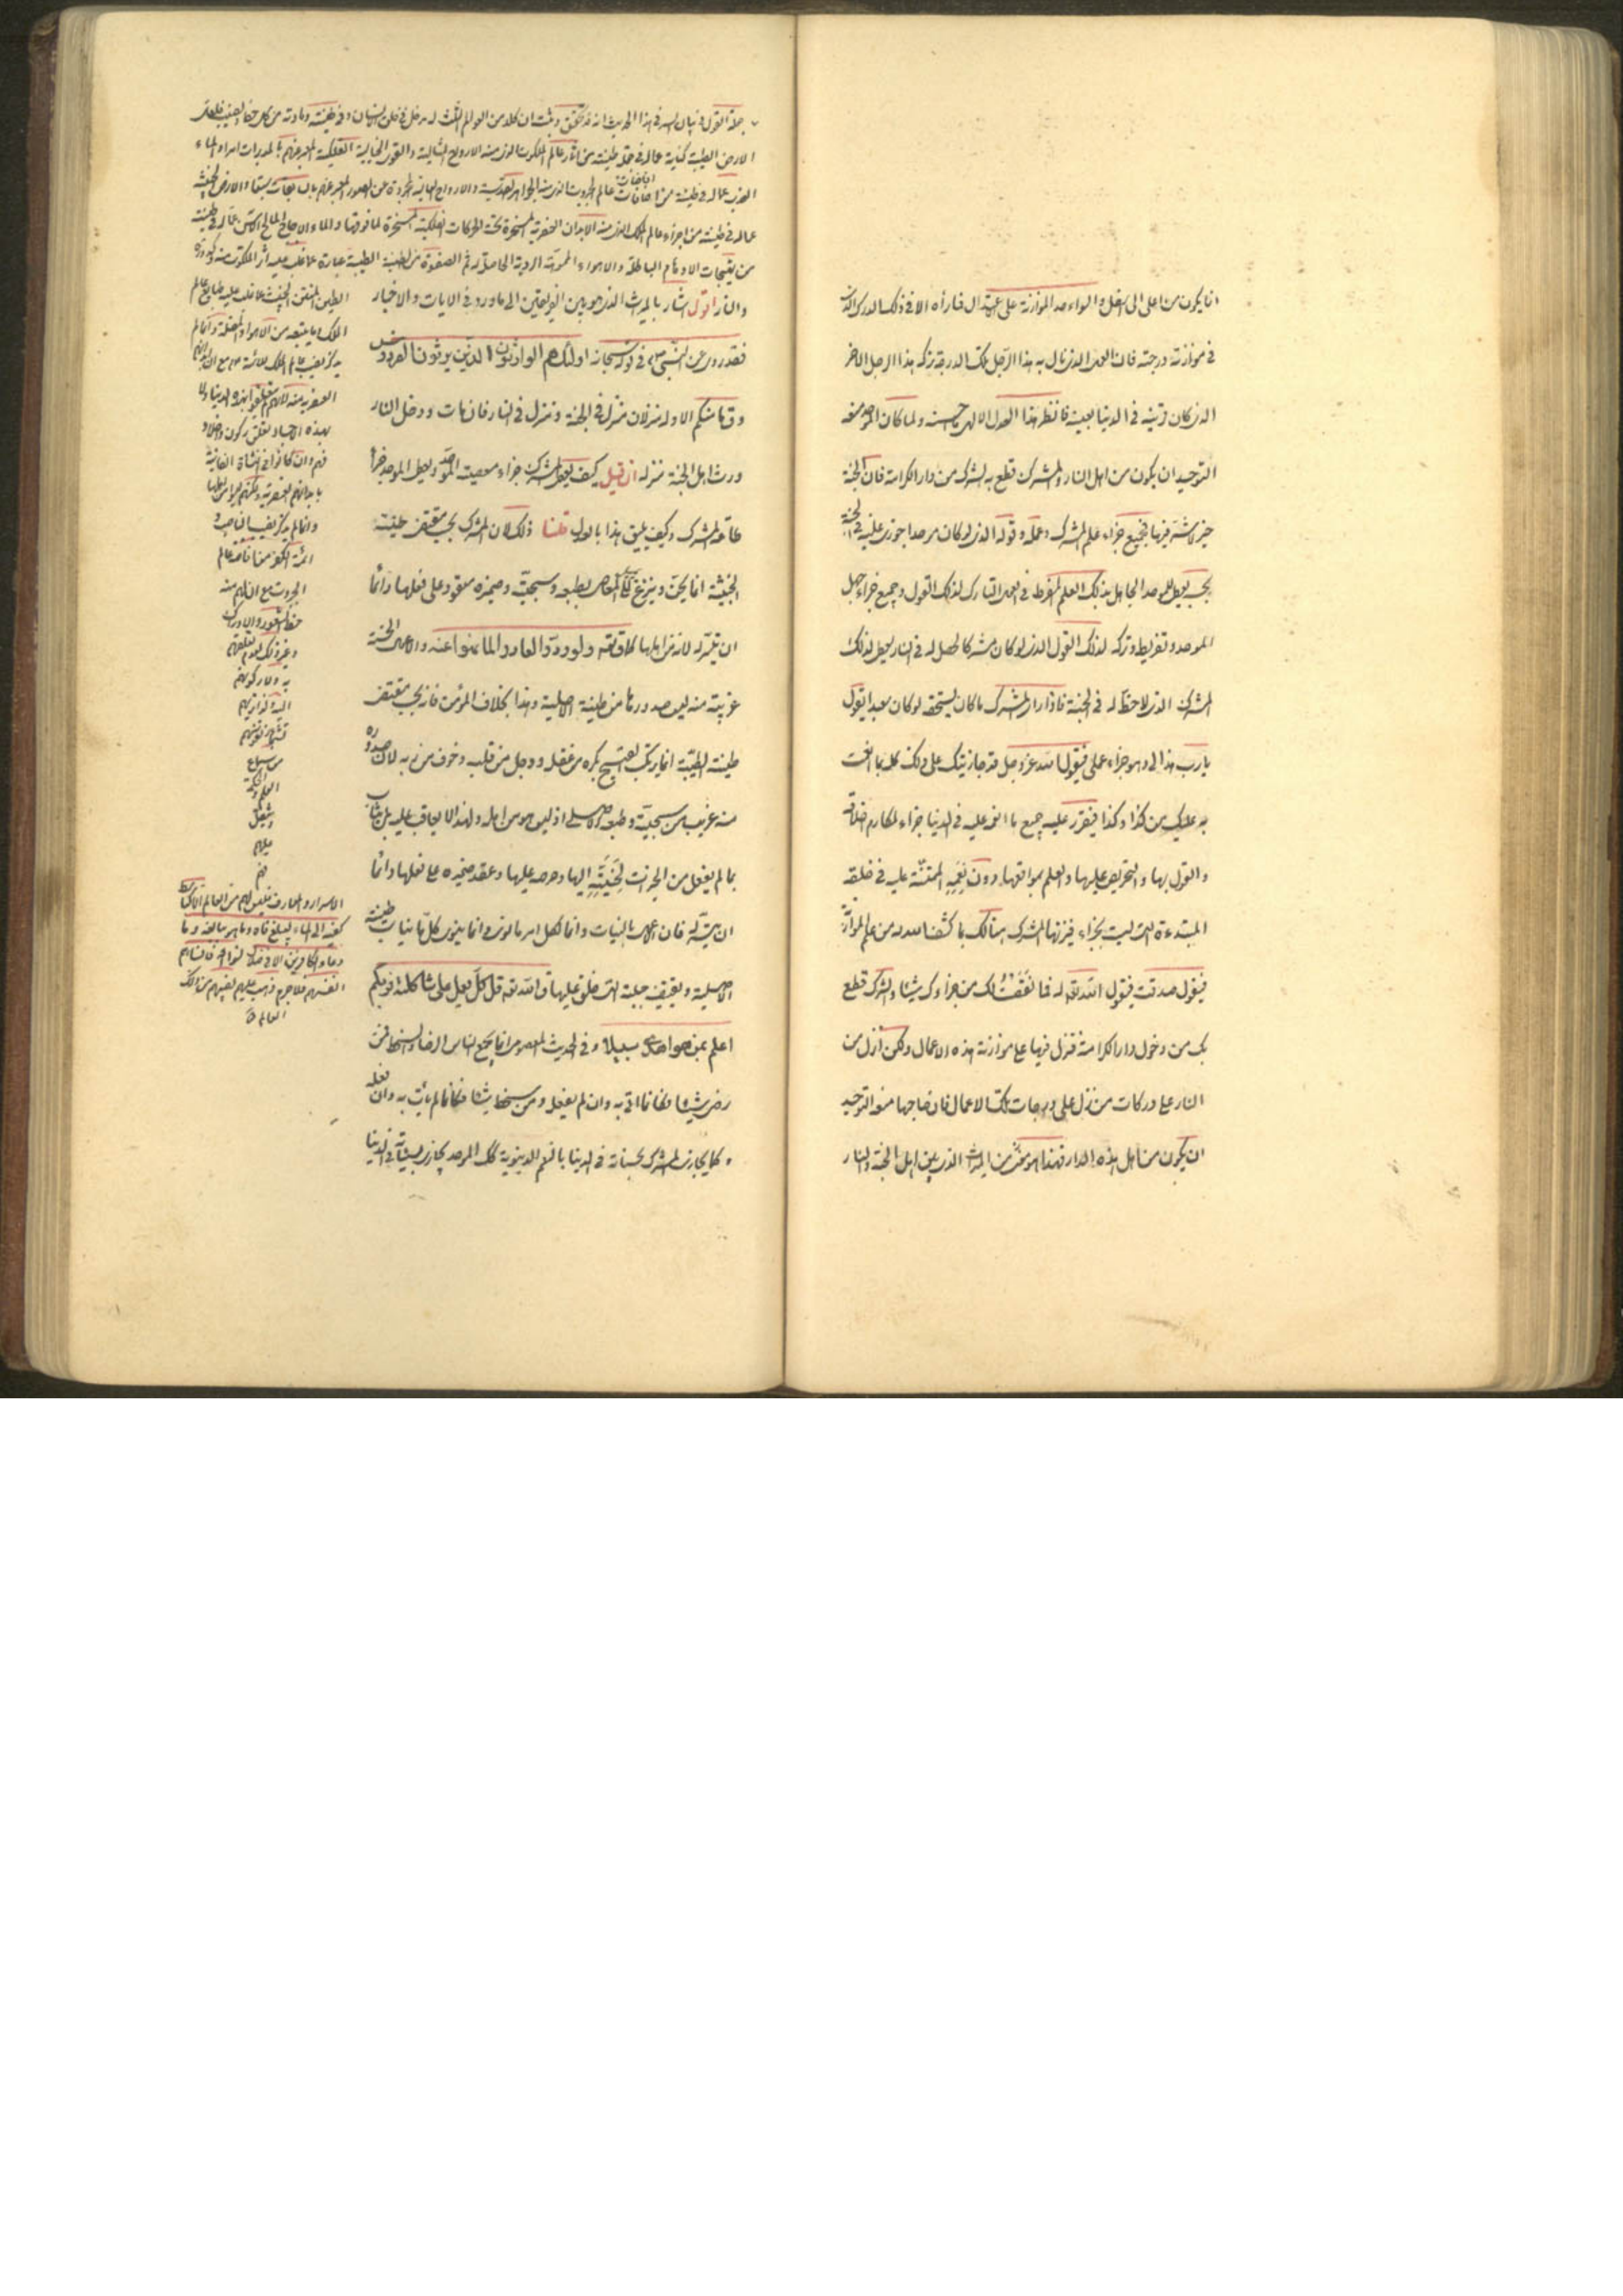 انما يكون من اعلى الى اسفل والواحد الموازنة على اعتدال فما رأه الا في ذلك الدرك الذي
في موازنة درجته فان العمل الذي نال به هذا الرجل تلك الدرجة تركه هذا الرجل الاخر
الذي كان قرينه في الدنيا بعينه فانظر هذا العدل الالهي ما حسنه ولما كان الموحد منعه
التوحيد ان يكون من اهل النار والمشرك قطع به الشرك من دار الكرامة فان الجنة
خير لا شر فيها فجميع جزاء علم المشرك وعمله وقوله الذي لو كان موحدا جوزي عليه في الجنة
بحسبه يعطى للموحد الجاهل بذلك العلم المفرط في العمل التارك لذلك القول وجميع جزاء جهل
الموحد وتفريطه وتركه لذلك القول الذي لو كان مشركا لحصل له في النار يعطى لذلك
المشرك الذي لا حظ له في الجنة فاذا راى المشرك ما كان يستحقه لو كان سعيدا يقول
يا رب هذا لي وهو جزاء عملي فيقول الله عز وجل قد جازيتك على ذلك كله بما انعمت
به عليك من كذا وكذا فيقرر عليه جميع ما انعم عليه في الدنيا جزاء لمكارم اخلاقه
والقول بها والتحريض عليها والعلم بمواقعها دون نعمه الممتنة عليه في خلقه
المبتدءة التي ليست بجزاء فيزنها المشرك هنالك بما كشف الله له من علم الموازنة
فيقول صدقت فيقول الله تعه له فما نقصتك من جزاءك شيئا والشرك قطع
بك من دخول دار الكرامة فتنزل فيها على موازنة هذه الاعمال ولكن انزل من
النار على دركات من نزل على درجات تلك الاعمال فان صاحبها منعه التوحيد
ان يكون من اهل هذه الدار فهذا هو من الميراث الذي بين اهل الجنة والنار
جملة القول في بيان السر في هذا الحديث انه قد تحقق وثبت ان كلا من العوالم الثلث له مدخل في خلق الانسان وفي طينته ومادته من كل حظ ونصيب فلعل
الارض الطيبة كناية عما له في جملة طينته من اثار عالم الملكوت الذي منه الارواح المثالية والقوى الخيالية الفلكية المعبر عنهم بالمدبرات امرا والماء
العذب عما له في طينته من افاضات عالم الجبروت الذي منه الجواهر القدسية والارواح العالية المجردة عن الصور المعبر عنهم بالسابقات سبقا والارض الخبيثة
عما له في طينته من اجزاء عالم الملك الذي منه الابدان العنصرية المسخرة تحت الحركات الفلكية المسخرة لما فوقها والماء الاجاج المالح الآسن عما له في طينته
من تهيجات الاوهام الباطلة والاهواء المموهة الردية الحاصلة ثم الصفوة من الطينة الطيبة عبارة عما غلب عليه اثر الملكوت منه
والنار اقول اشار بالميراث الذي هو بين الفريقين الى ما ورد في الايات والاخبار
فقد روي عن النبي ص في قوله سبحانه اولئك هم الوارثون الذين يرثون الفردوس
وق ما منكم الا وله منزلان منزل في الجنة ومنزل في النار فان مات ودخل النار
ورث اهل الجنة منزله ان قيل كيف يعطى المشرك جزاء معصيته الموحد ويعطى الموحد جزاء
طاعة المشرك وكيف يليق هذا بالعدل قلنا ذلك لان المشرك بحسب مقتضى طينته
الخبيثة انما يحن وينزع الى المعاصي بطبعه وسجيته وضميره معقود على فعلها دائما
ان تيسر له لانه من اهلها كما ق تعه ولو ردوا لعادوا لما نهوا عنه والاعمال الحسنة
غريبة منه ليس صدورها من طينته الاصلية وهذا بخلاف المؤمن فانه بحسب مقتضى
طينته الطيبة انما يرتكب القبيح بكره من عقله ووجل من قلبه وخوف من ربه لان صدوره
منه غريب من سجيته وطبعه الاصلي اذ ليس هو من اهله ولهذا لا يعاقب عليه بل يثاب
بما لم يفعل من الخيرات لحنينه اليها وحرصه عليها وعقد ضميره على فعلها دائما
ان تيسر له فان الاعمال بالنيات وانما لكل امرء ما نوى وانما ينوي كل ما يناسب طينته
الاصلية ويقتضيه جبلته التي خلق عليها ق الله تعه قل كل يعمل على شاكلته فربكم
اعلم بمن هو اهدى سبيلا وفي الحديث المعصومي انما يجمع الناس الرضا والسخط فمن
رضي شيئا فكانما اتى به وان لم يفعله ومن سخط شيئا فكانما لم يأت به وان فعله
وكما يجازى المشرك بحسناته في الدنيا بالنعم الدنيوية كك الموحد يجازى بسيئاته في الدنيا
الطين المنتن الخبيث ما غلب عليه طبايع عالم
الملك وما يتبعه من الاهواء المضلة وانما لم
العنصرية منه لانهم لم يتعلقوا بهذه الدنيا ولا
بهذه الاجساد تعلق ركون واخلاد
فهم وان كانوا في النشاة الفانية
بابدانهم العنصرية ولكنهم ليسوا من اهلها
وانما لم يذكر نصيب الناصب و
ائمة الكفر من افاضة عالم
الجبروت مع ان لهم منه
حظ الشعور والادراك
وغير ذلك لعدم تعلقهم
به ولا ركونهم
اليه ولذا تراهم
تشمئز نفوسهم
من سماع
العلم والحكمة
ويثقل
عليهم
فهم
الاسرار والمعارف فليس لهم من ذلك العالم الا كباسط
كفيه الى الماء ليبلغ فاه وما هو ببالغه وما
دعاء الكافرين الا في ضلال نسوا الله فانساهم
انفسهم فلا جرم ذهب عنهم نصيبهم من ذلك
العالم